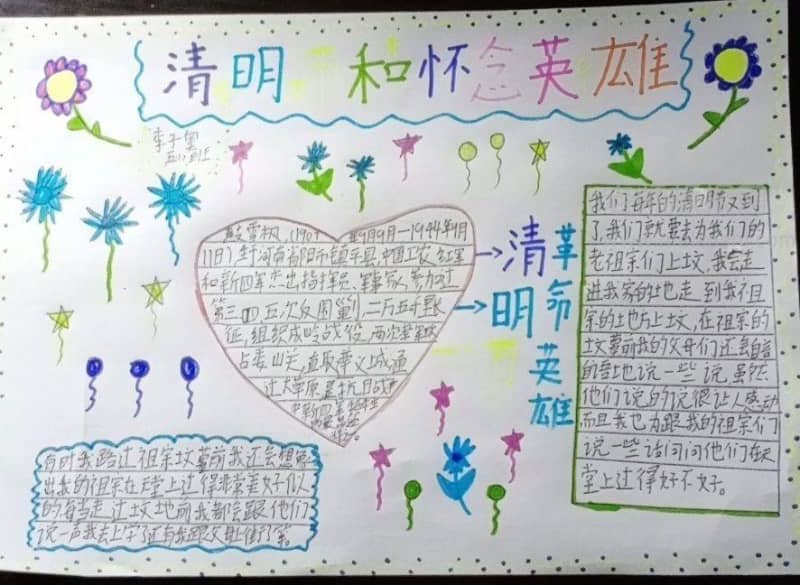 清明节和怀念英雄
李子
五(1)班
我们每年的清明节又到
了,我们就要去为我们的
老祖宗们上坟,我会走
进我家的土也走到我祖
宗的土也方上坟,在祖宗的
坟墓前我的父母们还会自言
自语土也说一些说虽然
他们说的说很让人感动
而且我也为跟我的祖宗们
说一些话问问他们在天
堂上过得好不好。
彭雪枫(1907年9月9日一1944年9月
11日)河南省南阳市镇平县,中国工农红军
和新四军杰出指挥员、军事家,参加过
第三四五次反围剿二万五千里长
征,组织战役,两次率军
占娄山关,直取遵义城,通
过大草原
清明节
革命英雄
有时我路过祖宗坟墓前我还会想象
出我的祖宗在天堂上过得非常美好似
的每当走过坟地前我都会跟他们
说一声我去上学了还有我跟父母上街了等。